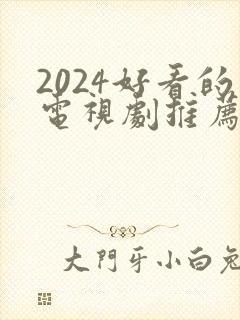 2024好看的
電視劇推薦
大門牙小白兔